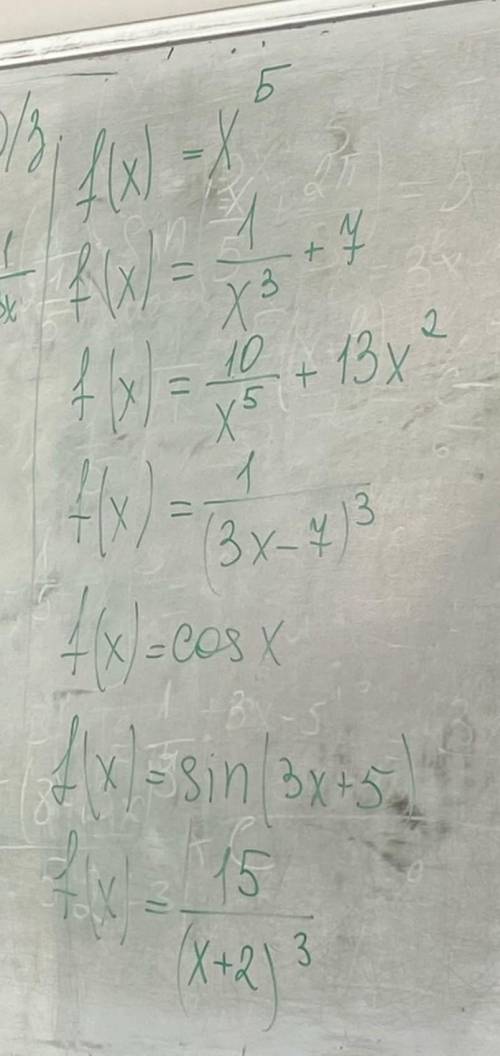 f(x) = x^5
f(x) = 1/x^3 + 7
f(x) = 10/x^5 + 13x^2
f(x) = 1/(3x-7)^3
f(x) = cos x
f(x) = sin(3x+5)
f(x) = 15/(x+2)^3